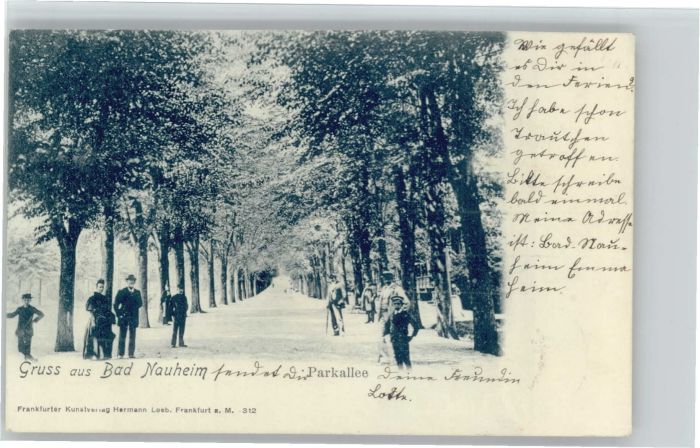 Wie gefällt
es Dir in
den Ferien?
Ich habe schon
Trautchen
getroffen.
Bitte schreibe
bald einmal.
Meine Adresse
ist: Bad-Nau-
heim Emma
heim.
Gruss aus Bad Nauheim sendet Dir Parkallee Deine Freundin
Lotte.
Frankfurter Kunstverlag Hermann Loeb, Frankfurt a. M. -312